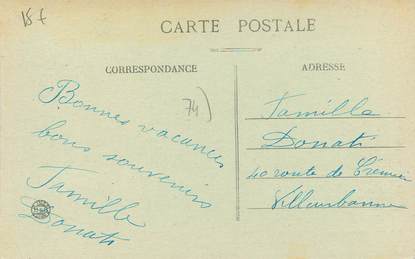 15 f
CARTE POSTALE
CORRESPONDANCE
ADRESSE
74)
Bonnes vacances
bons souvenirs
Famille
Donati
Famille
Donati
40 route de Crémieu
Villeurbanne